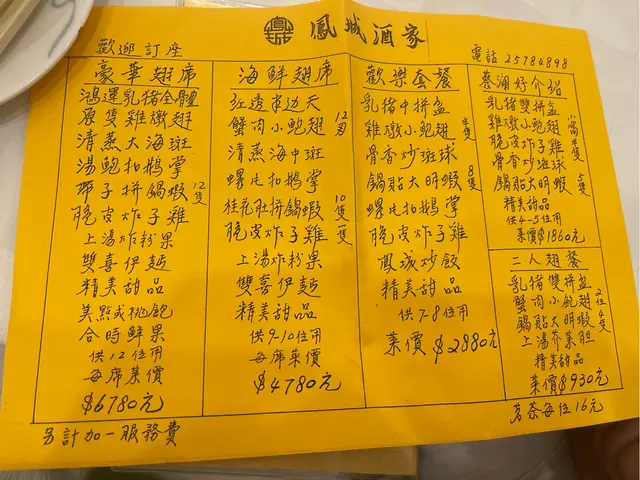 鳳城酒家
歡迎訂座
電話 25784898
豪華翅席
鴻運乳豬全體
原隻雞燉翅
清蒸大海斑
湯鮑扣鵝掌
帶子拼鍋蝦 12隻
脆皮炸子雞
上湯炸粉果
雙喜伊麵
精美甜品
美點或桃飽
合時鮮果
供12位用
每席菜價
$6780元
海鮮翅席
紅透半边天
蟹肉小鮑翅 12両
清蒸海中斑
螺片扣鵝掌
桂花肚拼鍋蝦 10隻
脆皮炸子雞 一隻
上湯炸粉果
雙喜伊麵
精美甜品
供9-10位用
每席菜價
$4780元
歡樂套餐
乳豬中拼盆
雞燉小鮑翅 半隻
骨香炒斑球
鍋貼大明蝦 8隻
螺片扣鵝掌
脆皮炸子雞
鳳城炒飯
精美甜品
供7-8位用
菜價$2880元
蔡瀾好介紹
乳豬雙拼盆
雞燉小鮑翅
脆皮炸子雞 半隻
骨香炒斑球
鍋貼大明蝦 5隻
精美甜品
供4-5位用
菜價$1860元
二人翅餐
乳豬雙拼盆
蟹肉小鮑翅 2位
鍋貼大明蝦 2隻
上湯芥菜胆
精美甜品
菜價$930元
茗茶每位16元
另計加一服務費